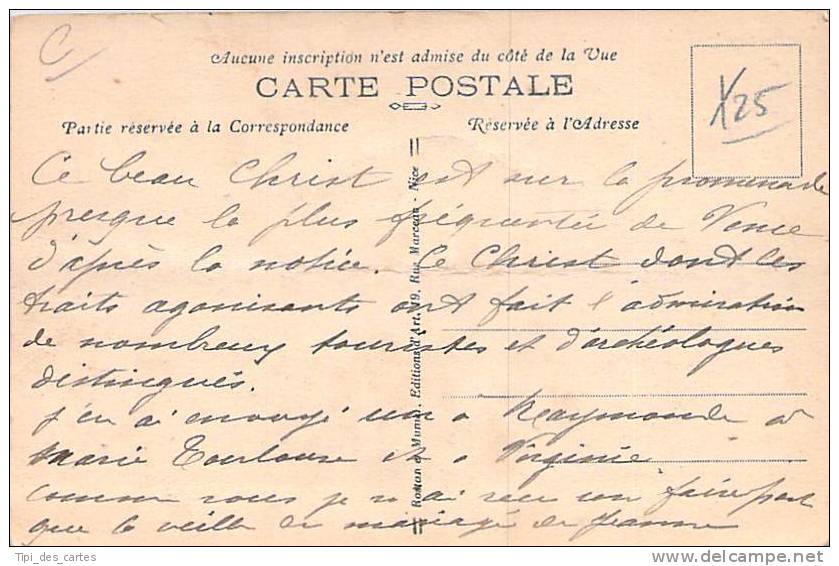 C
Aucune inscription n'est admise du côté de la Vue
CARTE POSTALE
Partie réservée à la Correspondance
Réservée à l'Adresse
X25
Ce beau Christ est sur la promenade
presque la plus fréquentée de Vence
d'après la notice. Ce Christ dont les
traits agonisants ont fait l'admiration
de nombreux touristes et d'archéologues
distingués.
j'en ai envoyé un a Raymonde a
Marie Toulouse et a Virginie
comme vous je n'ai recu un faire part
que la veille du mariage de Jeanne
Rostan & Munier, Editions d'Art, 19, Rue Marceau - Nice
Tipi_des_cartes
delcampe.net